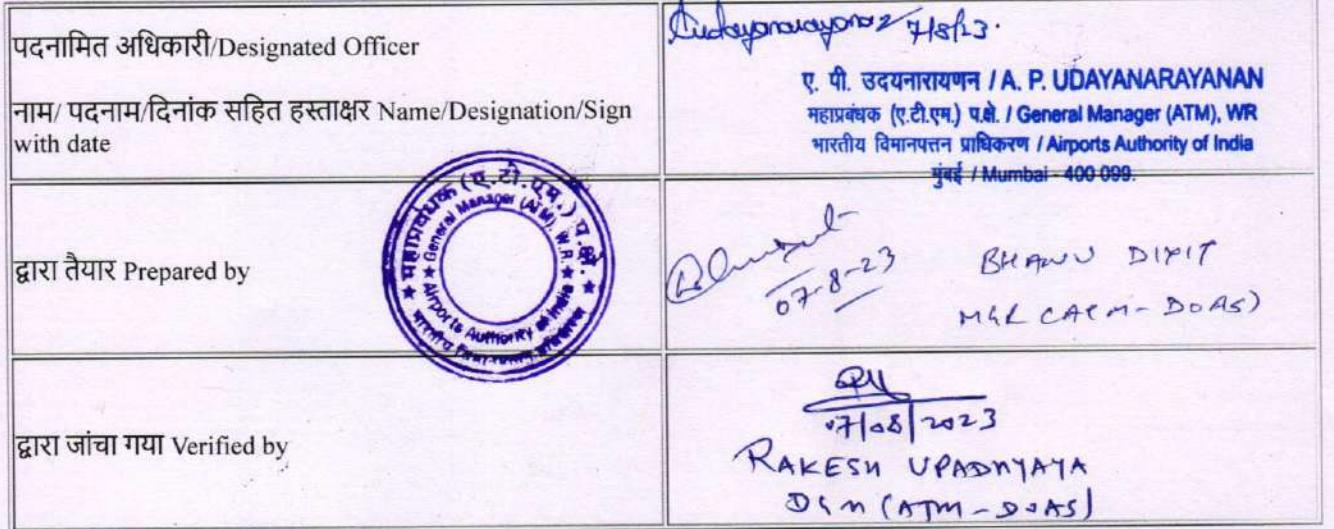 पदनामित अधिकारी/Designated Officer
नाम/ पदनाम/दिनांक सहित हस्ताक्षर Name/Designation/Sign
with date
7/8/23.
ए. पी. उदयनारायणन / A. P. UDAYANARAYANAN
महाप्रबंधक (ए.टी.एम.) प.क्षे. / General Manager (ATM), WR
भारतीय विमानपत्तन प्राधिकरण / Airports Authority of India
मुंबई / Mumbai - 400 099.
महाप्रबंधक (ए.टी.एम.) प.क्षे.
General Manager (ATM), W.R.
Airports Authority of India
द्वारा तैयार Prepared by
07-8-23
BHANU DIXIT
MGR (ATM-DOAS)
द्वारा जांचा गया Verified by
07/08/2023
RAKESH UPADHYAYA
DGM (ATM-DOAS)